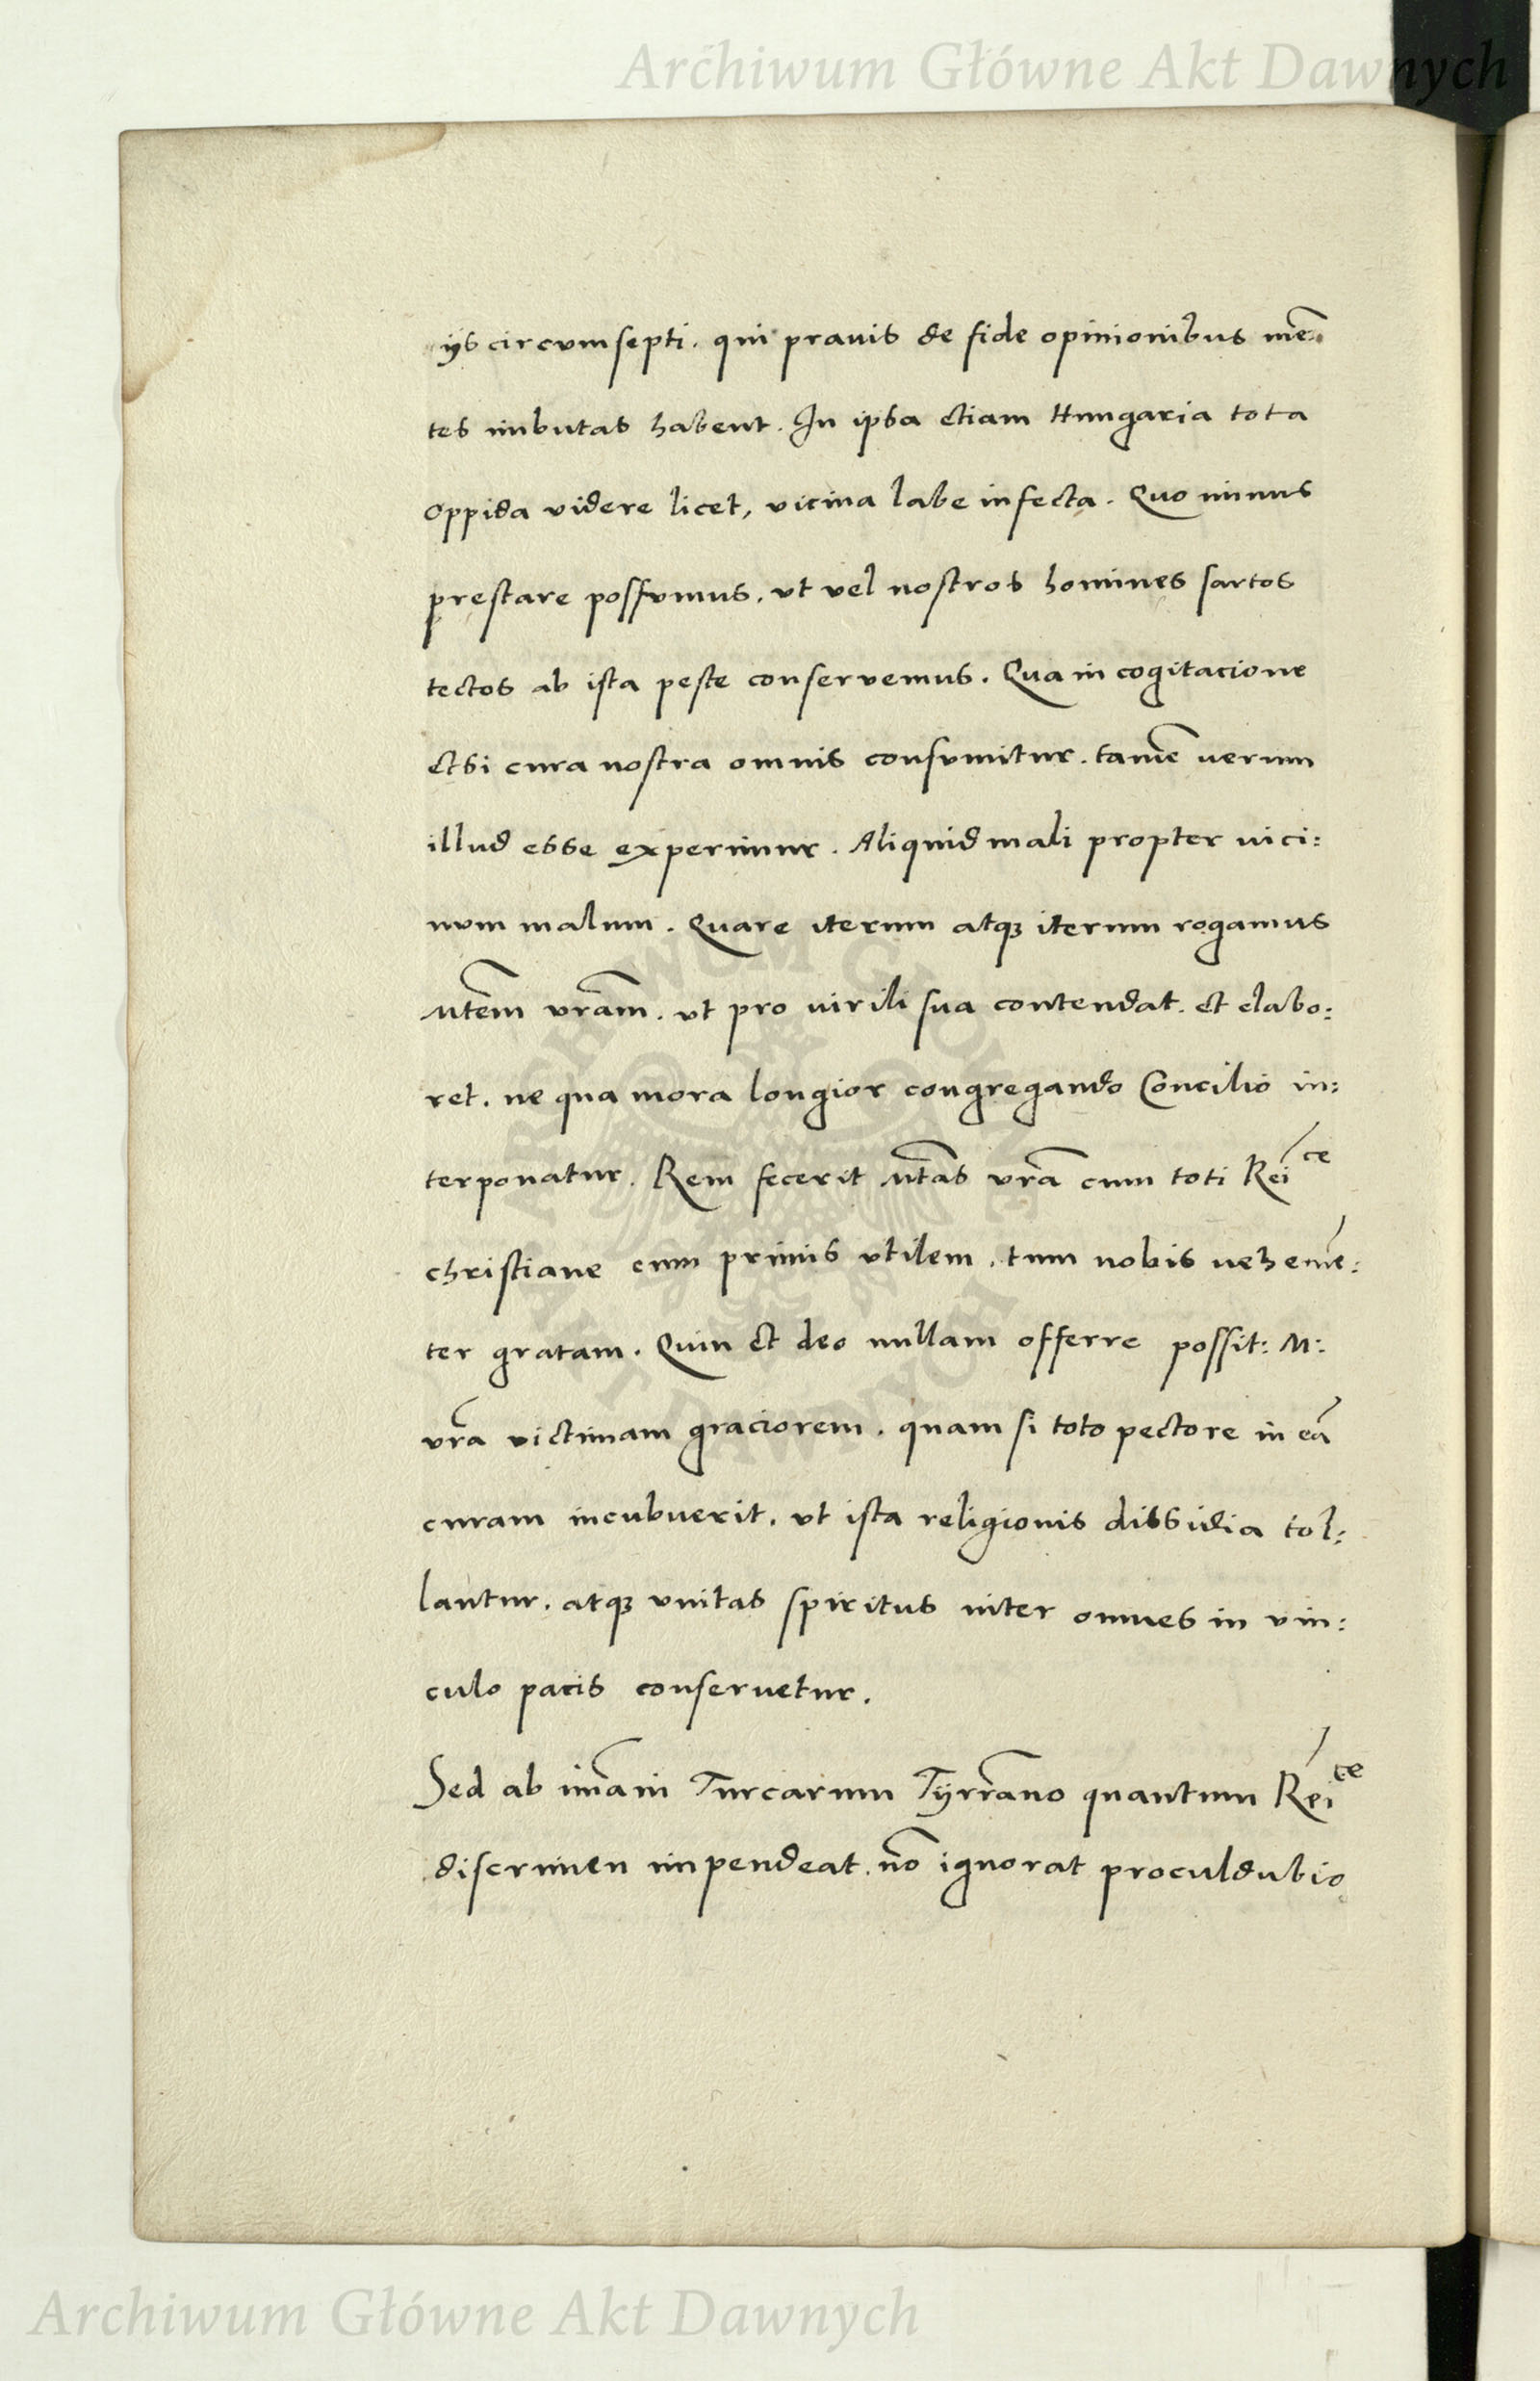 Archiwum Główne Akt Dawnych
ijs circumsepti. qui prauis de fide opinionibus mẽ:
tes imbutas habent. In ipsa etiam Hungaria tota
oppida videre licet, vicina labe infecta. Quo minus
prestare possumus, vt vel nostros homines sartos
tectos ab ista peste conservemus. Qua in cogitacione
etsi cura nostra omnis consumitur. tamẽ uerum
illud esse experimur. Aliquid mali propter uici:
num malum. Quare iterum atq3 iterum rogamus
Mtem vram. vt pro uirili sua contendat. et elabo:
ret. ne qua mora longior congregando Concilio in:
terponatur. Rem fecerit Mtas vra cum toti Reice
christiane cum primis vtilem, tum nobis uehemẽ:
ter gratam. Quin et deo nullam offerre possit: M:
vra victimam graciorem. quam si toto pectore in eã
curam incubuerit. vt ista religionis dissidia tol:
lantur. atq3 vnitas spiritus inter omnes in vin:
culo pacis conseruetur.
Sed ab imani Turcarum Tyrrano quantum Reice
discrimen impendeat. nõ ignorat proculdubio
ARCHIWUM GŁÓWNE
AKT DAWNYCH
Archiwum Główne Akt Dawnych